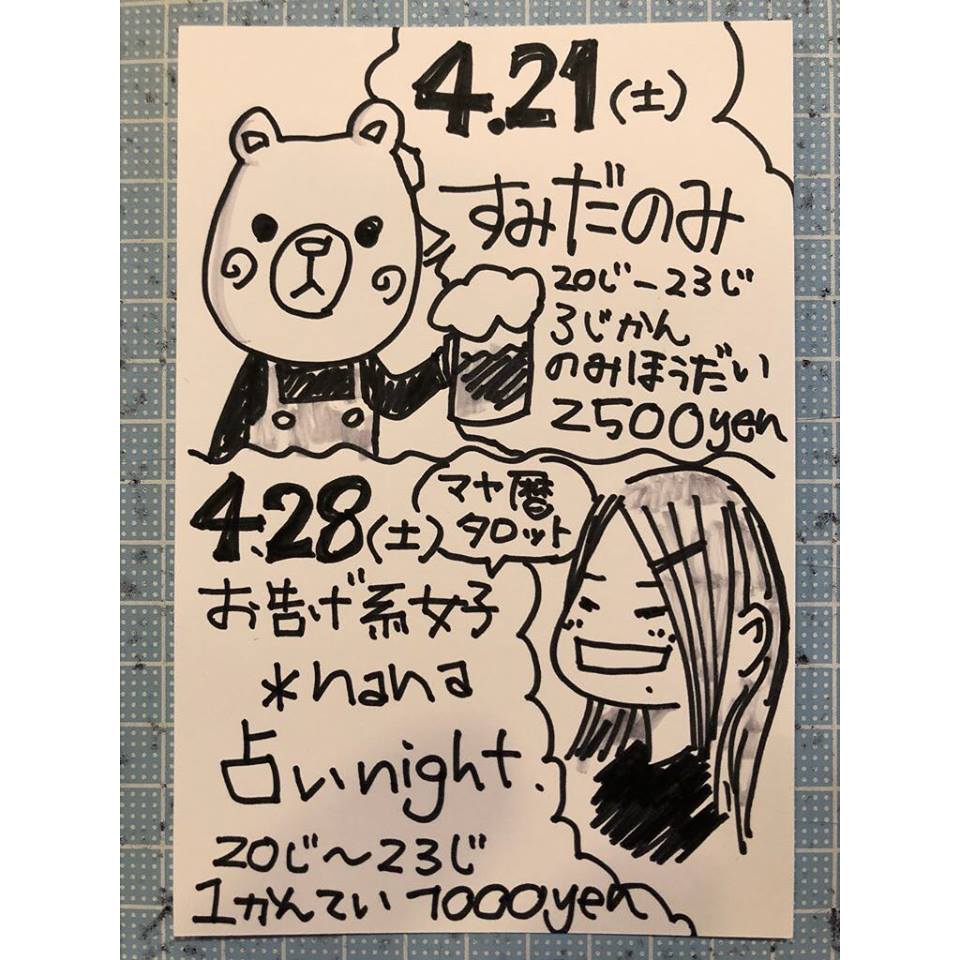 4.21(土)
すみだのみ
20じ-23じ
3じかん
のみほうだい
2500yen
4.28(土)
マヤ暦
タロット
お告げ系女子
*nana
占いnight.
20じ〜23じ
1かんてい1000yen